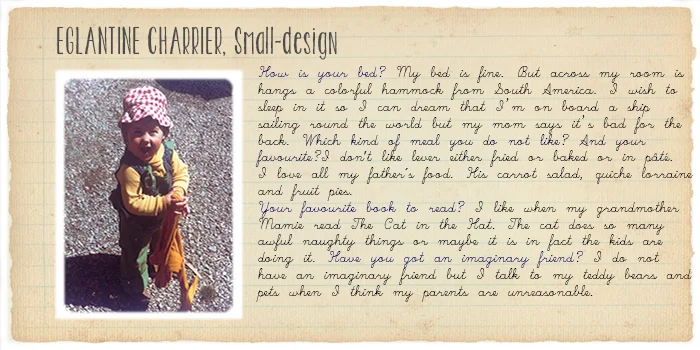 EGLANTINE CHARRIER, Small-design
How is your bed? My bed is fine. But across my room is
hangs a colorful hammock from South America. I wish to
sleep in it so I can dream that I'm on board a ship
sailing round the world but my mom says it's bad for the
back. Which kind of meal you do not like? And your
favourite?I don't like lever either fried or baked or in pâte.
I love all my father's food. His carrot salad, quiche lorraine
and fruit pies.
Your favourite book to read? I like when my grandmother
Mamie read The Cat in the Hat. The cat does so many
awful naughty things or maybe it is in fact the kids are
doing it. Have you got an imaginary friend? I do not
have an imaginary friend but I talk to my teddy bears and
pets when I think my parents are unreasonable.